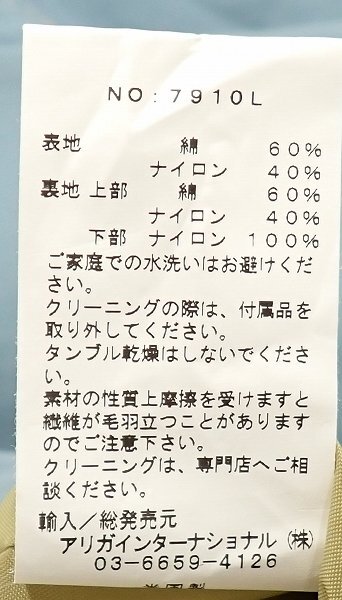 NO:7910L
表地 綿 60%
ナイロン 40%
裏地 上部 綿 60%
ナイロン 40%
下部 ナイロン 100%
ご家庭での水洗いはお避けくだ
さい。
クリーニングの際は、付属品を
取り外してください。
タンブル乾燥はしないでくださ
い。
素材の性質上摩擦を受けますと
繊維が毛羽立つことがあります
のでご注意下さい。
クリーニングは、専門店へご相
談ください。
輸入/総発売元
アリガインターナショナル(株)
03-6659-4126